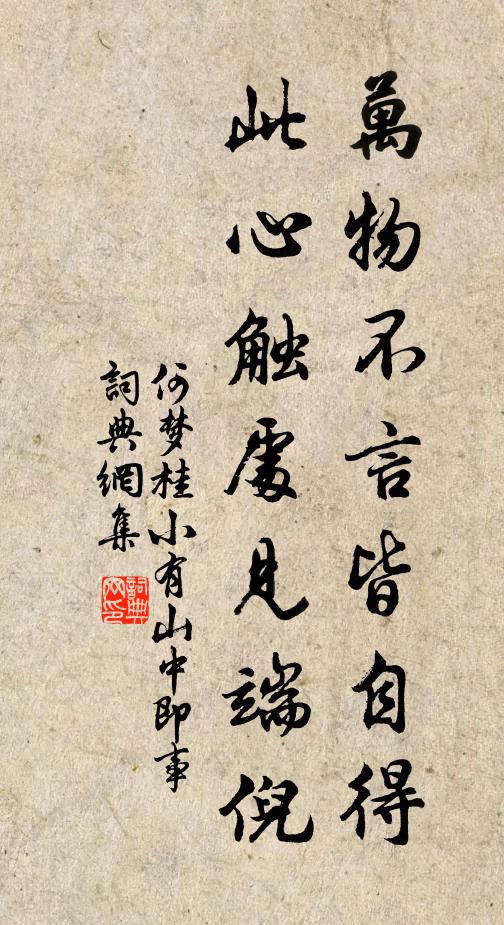 萬物不言皆自得
此心触處見端倪
何梦桂小有山中即事
詞典網集
詞典网印